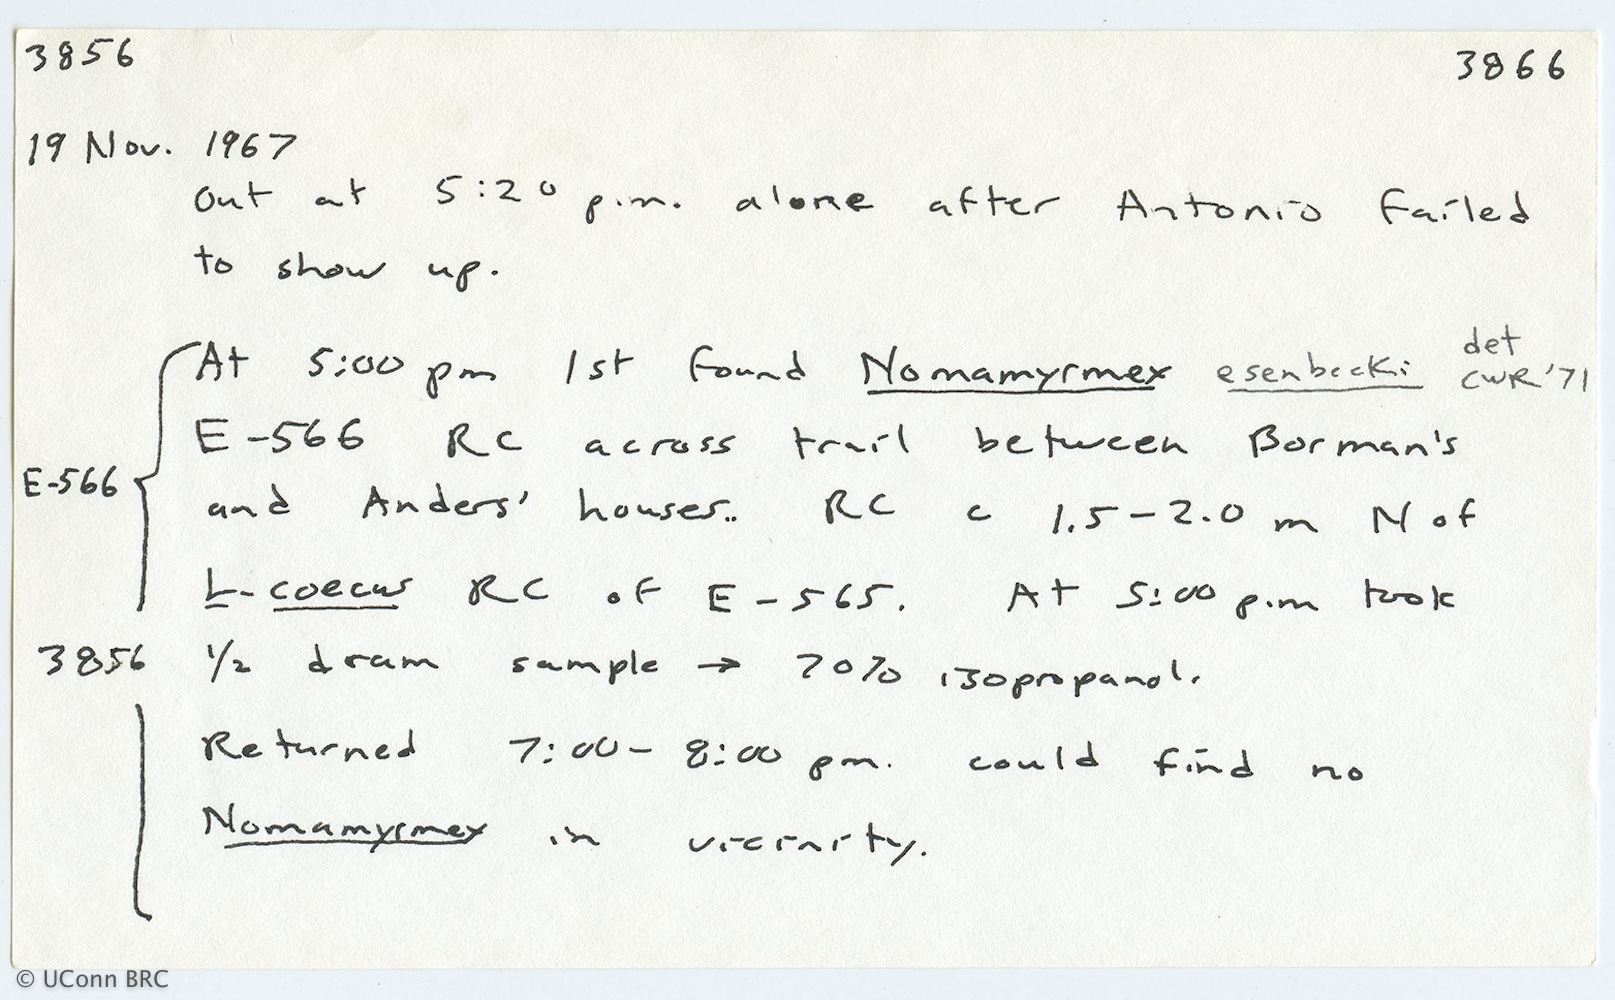 3856 3866
19 Nov. 1967
Out at 5:20 p.m. alone after Antonio failed
to show up.
At 5:00 pm 1st found Nomamyrmex esenbecki det CWR '71
E-566 RC across trail between Borman's
E-566
and Anders' houses.. RC c 1.5-2.0 m N of
L. coecus RC of E-565. At 5:00 p.m took
3856 1/2 dram sample → 70% isopropanol.
Returned 7:00-8:00 pm. could find no
Nomamyrmex in vicinity.
© UConn BRC